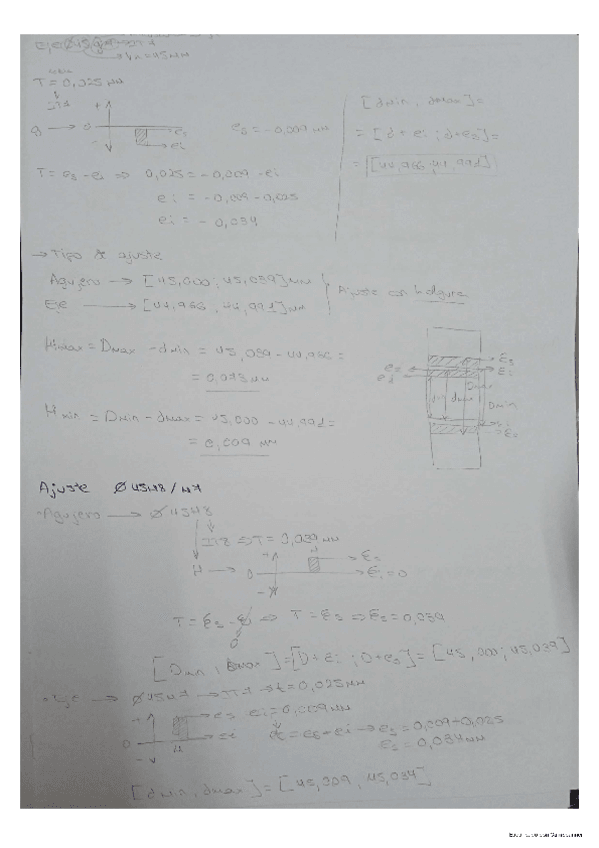 T = 0,025 mm
IT7
g → 0
es
ei
es = -0,009 mm
T = es - ei ⇒ 0,025 = -0,009 - ei
ei = -0,009 - 0,025
ei = -0,034
[dmin, dmax] =
= [d + ei ; d + es] =
= [44,966, 44,991]
→ Tipo de ajuste
Agujero → [45,000; 45,039] mm
Eje → [44,966, 44,991] mm
Ajuste con holgura
Hmax = Dmax - dmin = 45,039 - 44,966 =
= 0,073 mm
Hmin = Dmin - dmax = 45,000 - 44,991 =
= 0,009 mm
Es
Ei
es
ei
Dmax
dmax
Dmin
Ajuste Ø45H8/m7
- Agujero → Ø45H8
IT8 ⇒ T = 0,039 mm
H → 0
Es
Ei = 0
T = Es - Ei ⇒ T = Es ⇒ Es = 0,039
[Dmin, Dmax] = [D + Ei ; D + Es] = [45,000; 45,039]
- Eje → Ø45m7 → IT7 → t = 0,025 mm
es ei = 0,009 mm
ei t = es - ei → es = 0,009 + 0,025
es = 0,034 mm
[dmin, dmax] = [45,009, 45,034]